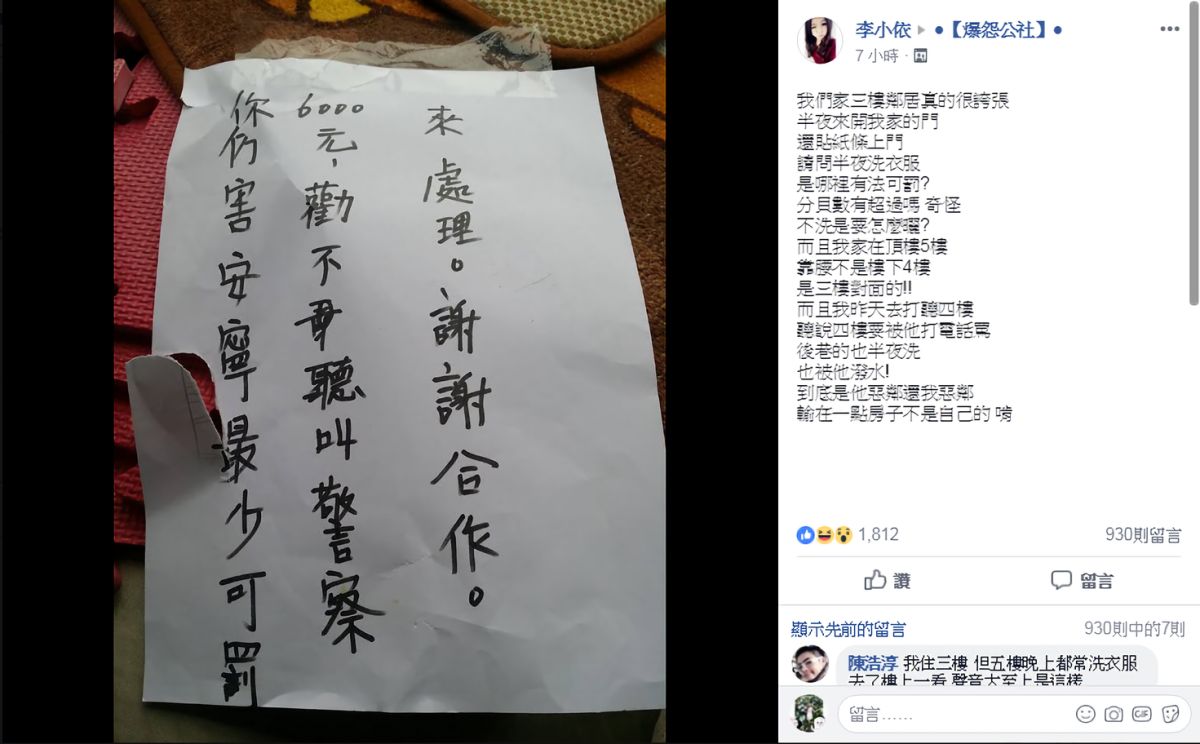 你仍害安寧最少可罰
6000元，勸不聽叫警察
來處理。謝謝合作。
李小依 ▸ ●【爆怨公社】●
7 小時 ·
我們家三樓鄰居真的很誇張
半夜來開我家的門
還貼紙條上門
請問半夜洗衣服
是哪裡有法可罰?
分貝數有超過嗎 奇怪
不洗是要怎麼曬?
而且我家在頂樓5樓
靠腰不是樓下4樓
是三樓對面的!!
而且我昨天去打聽四樓
聽說四樓要被他打電話罵
後巷的也半夜洗
也被他潑水!
到底是他惡鄰還我惡鄰
輸在一點房子不是自己的 唷
1,812
930則留言
讚
留言
顯示先前的留言
930則中的7則
陳浩淳 我住三樓 但五樓晚上都常洗衣服
去了樓上一看 聲音大至上是這樣
留言……
GIF